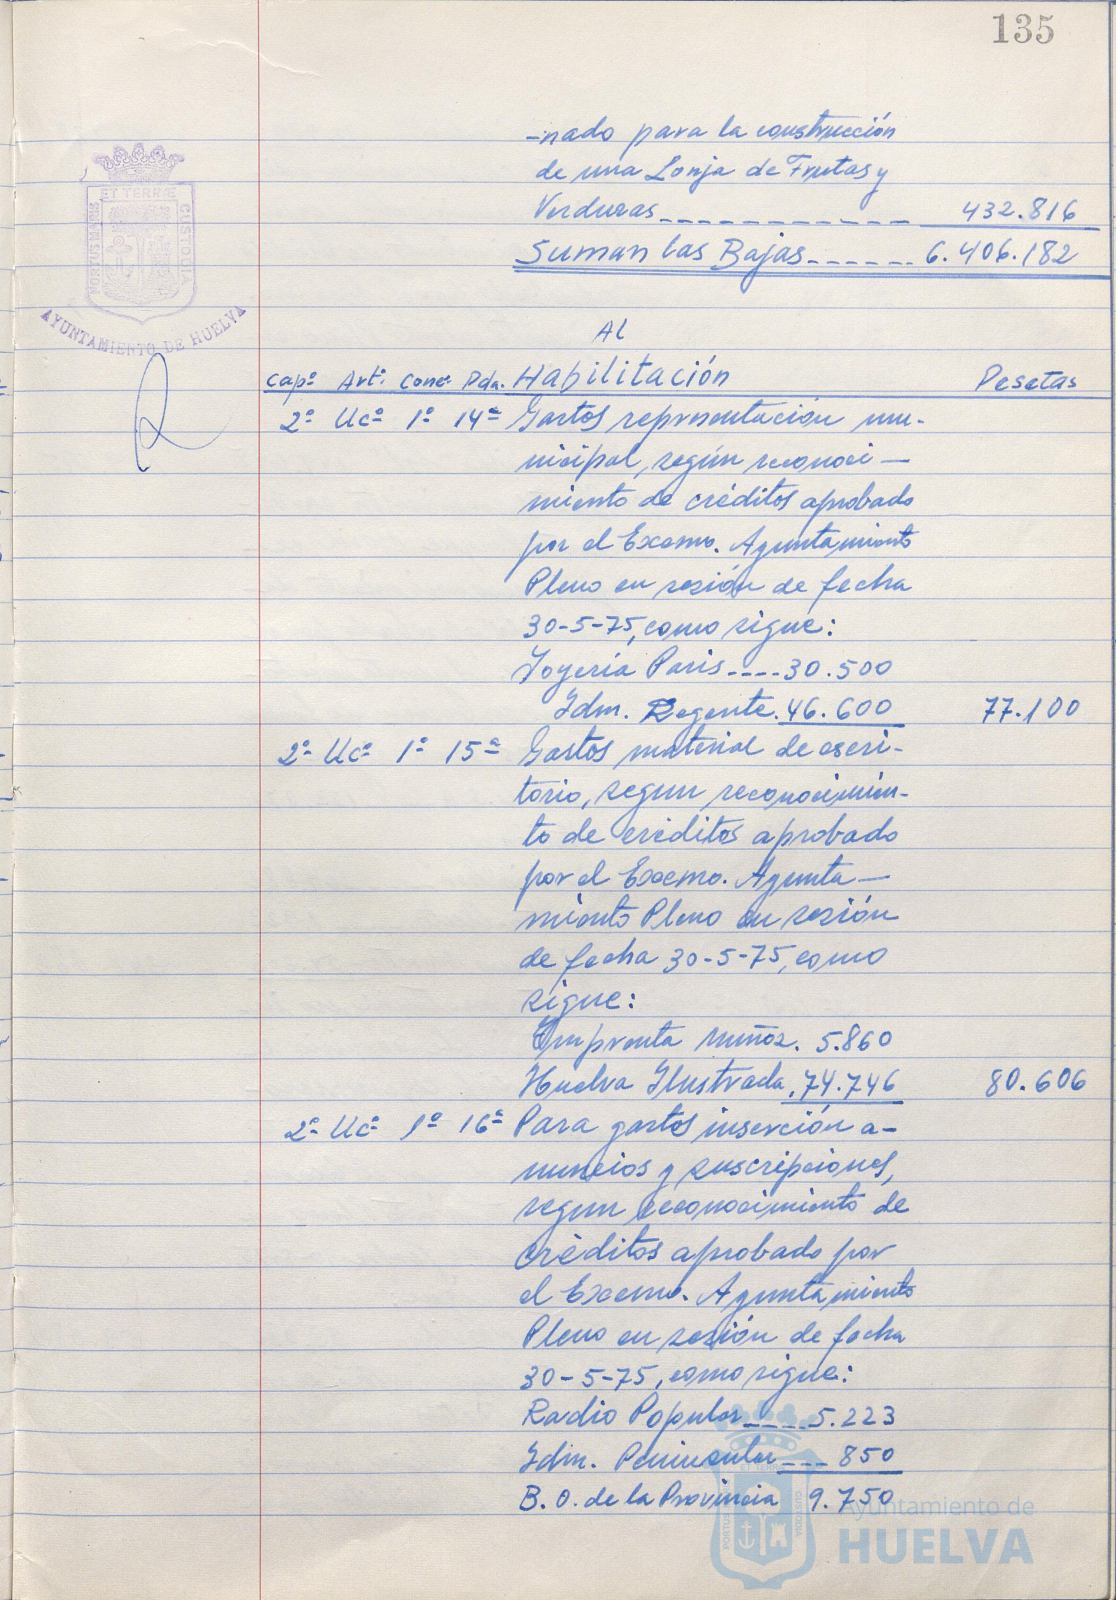 135
-nado para la construcción
de una Lonja de Frutas y
Verduras 432.816
Suman las Bajas 6.406.182
ET TERRÆ
PORTUS MARIS
CUSTODIA
AYUNTAMIENTO DE HUELVA
Al
Capº Artº. Concº Pda. Habilitación Pesetas
2º Ucº 1º 14ª Gastos representación mu-
nicipal, según reconoci-
miento de créditos aprobado
por el Excmo. Ayuntamiento
Pleno en sesión de fecha
30-5-75, como sigue:
Joyería Paris 30.500
Idm. Regente. 46.600 77.100
2º Ucº 1º 15ª Gastos material de escri-
torio, segun reconocimien-
to de créditos aprobado
por el Excmo. Ayunta-
miento Pleno en sesión
de fecha 30-5-75, como
sigue:
Imprenta Muñoz. 5.860
Huelva Ilustrada. 74.746 80.606
2º Ucº 1º 16ª Para gastos inserción a-
nuncios y suscripciones,
segun reconocimiento de
créditos aprobado por
el Excmo. Ayuntamiento
Pleno en sesión de fecha
30-5-75, como sigue:
Radio Popular 5.223
Idm. Peninsular 850
B. O. de la Provincia 9.750
Ayuntamiento de
HUELVA